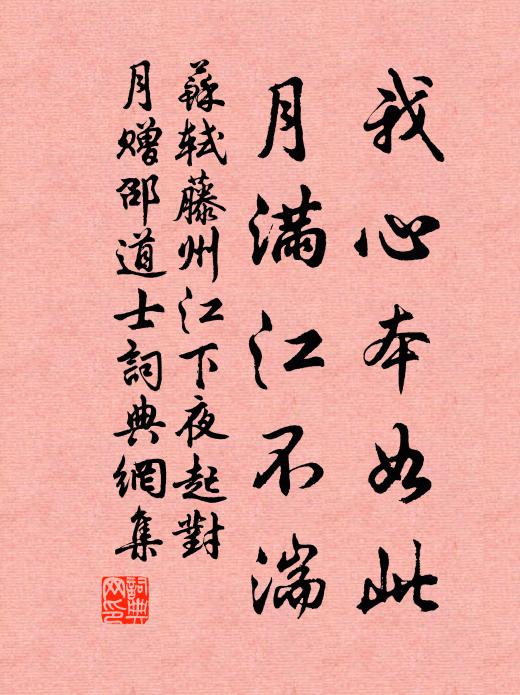 我心本如此
月满江不湍
蘇軾藤州江下夜起對
月赠邵道士詞典網集
詞典网印